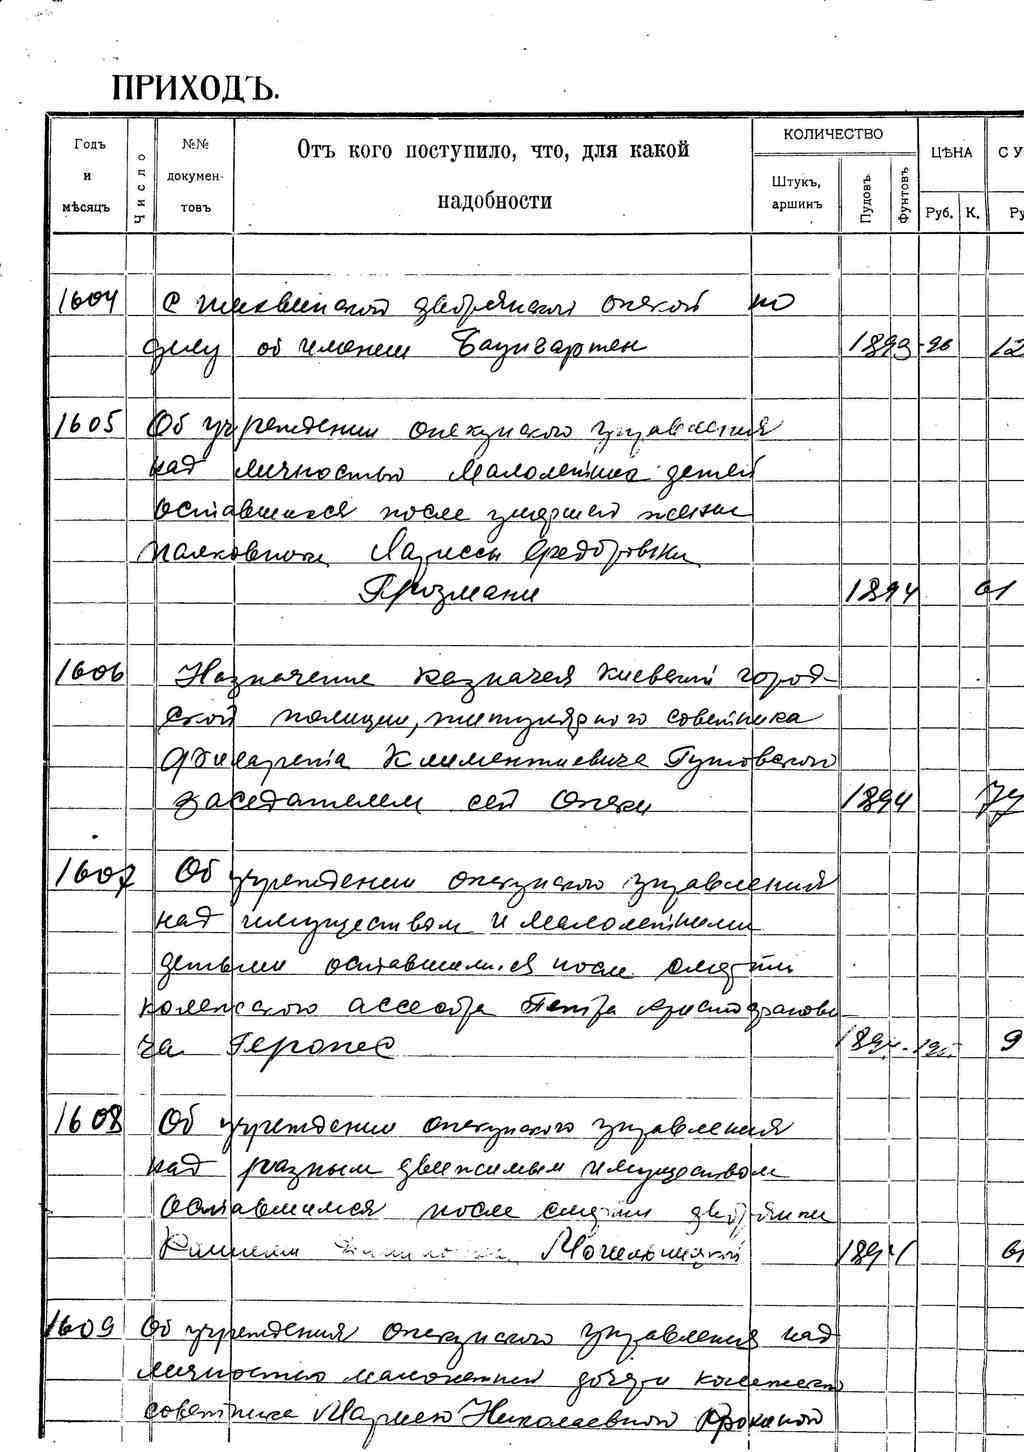 ПРИХОДЪ.
Годъ и мѣсяцъ
Число
№№ докумен-товъ
Отъ кого поступило, что, для какой
надобности
КОЛИЧЕСТВО
Штукъ, аршинъ
Пудовъ
Фунтовъ
ЦѢНА
Руб. К.
С У
Ру
1604 С дворянской опекой по
делу об имении Баумгартен 1893-96 12
1605 Об учреждении опекунского управления
над личностью малолетних детей
оставшихся после умершей жены
полковника Лариссы Федоровны
1894 61
1606 Назначение казначея Киевской город-
ской полиции, титулярного советника
Климентиевича Гутовского
заседателем сей Опеки 1894 77
1607 Об учреждении опекунского управления
над имуществом и малолетними
детьми оставшимися после смерти
колежского ассесора Петра Христофорови-
ча Геропес 9
1608 Об учреждении опекунского управления
над разным движимым имуществом
оставшимся после смерти дворянки
Могильницкой 1894 61
1609 Об учреждения опекунского управления над
личностью малолетней дочери колежского
советника Мариею Николаевною